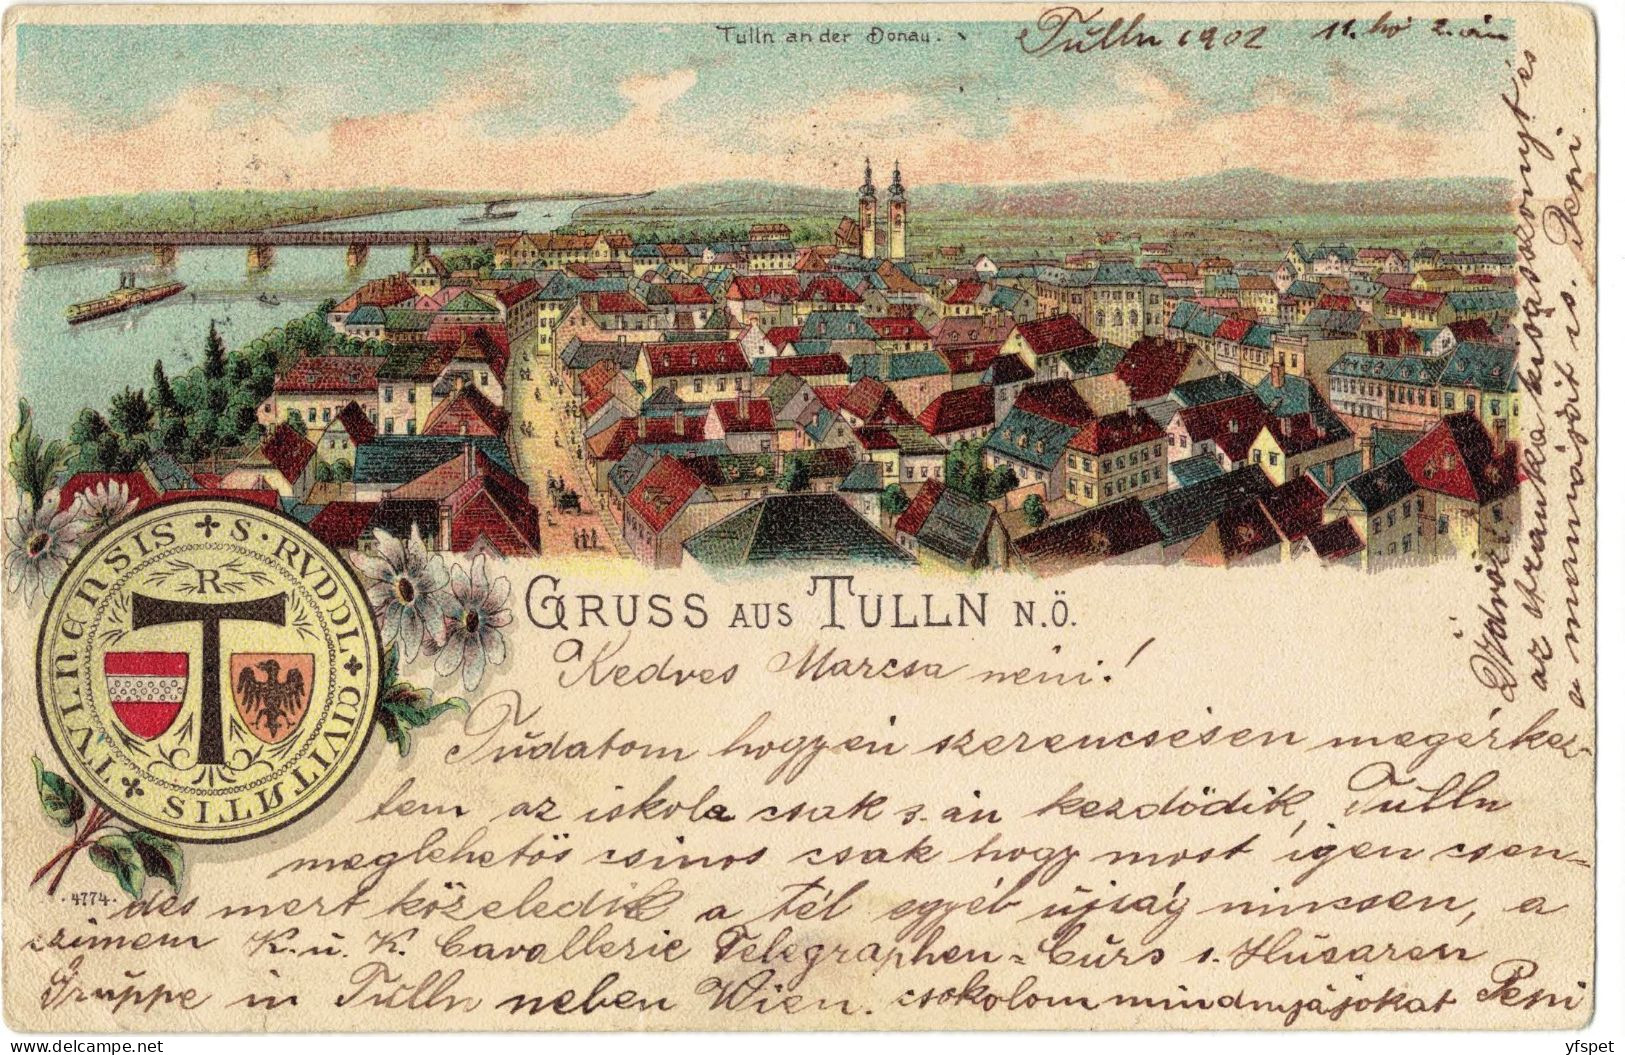 Tulln an der Donau.
Tulln 1902 11. hó 2.-án
GRUSS AUS TULLN N.Ö.
+ S · RVDDL + CIVITATIS + TVLNENSIS
R
T
4774.
Kedves Marcsa néni!
Tudatom hogy én szerencsésen megérkez-
tem az iskola csak 3.-án kezdődik, Tulln
meglehetős csinos csak hogy most igen csen-
des mert közeledik a tél egyéb újság nincsen, a
czimem K. u. K. Cavallerie Telegraphen-Curs 1. Husaren
Gruppe in Tulln neben Wien. csokolom mindnyájokat Peni
az Aranka kisasszonyt és
a mamáját is. Peni
yfspet
delcampe.net